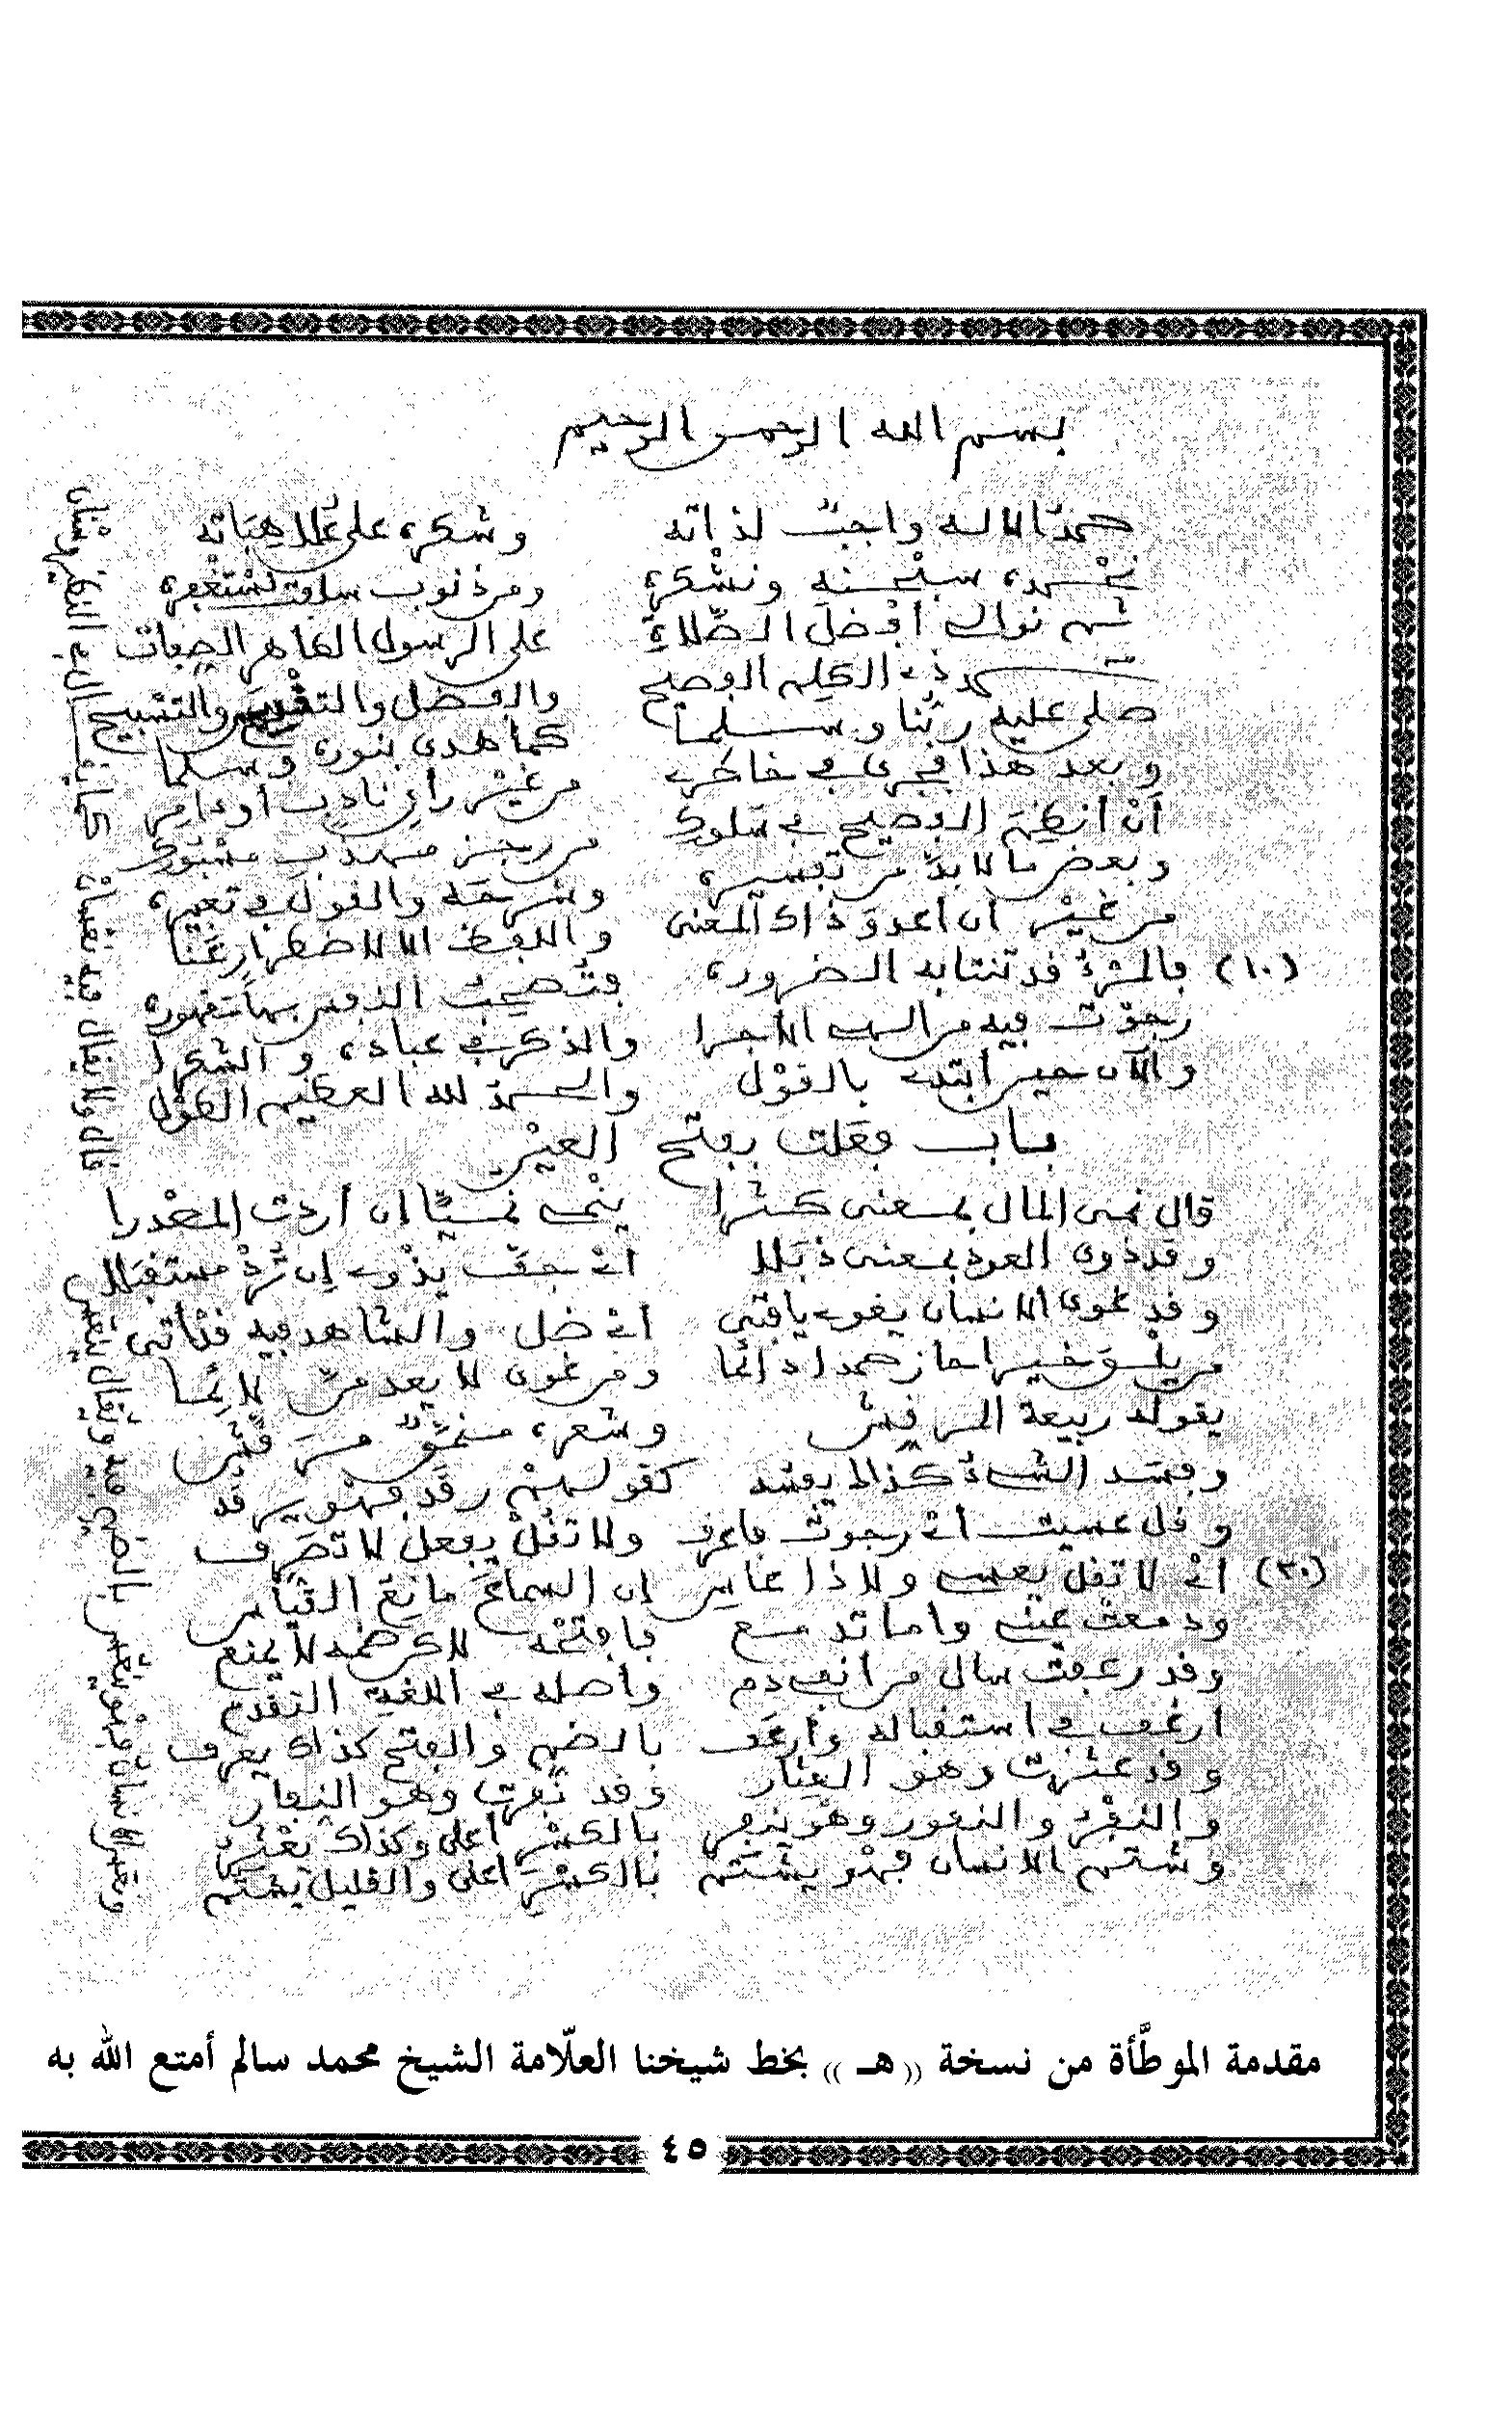 بسم الله الرحمن الرحيم
حمد الاله واجب لذاته وشكره على علا هباته
نحمده سبحنه ونشكره ومن ذنوب سلفت نستغفره
ثم نوالي أفضل الصلاة على الرسول الطاهر الصفات
محمد ذي الكلم الفصيح والفضل والتقديس والتسبيح
صلى عليه ربنا وسلما كما هدى بنوره وسلما
وبعد هذا فجرى في خاطري من غير رأي نادب أو ءامر
أن أنظم الفصيح في سلوك من رجز مهذب مسبوك
وبعض ما لا بد من تفسيره وشرحه والقول في تعبيره
من غير أن أعدو ذاك المعنى واللفظ الا لاضطرار عنا
(١٠) فالمرء قد تنتابه الضروره فتصحب النفس بها مقهوره
رجوت فيه من الهي الأجرا والذكر في عباده والشكرا
والآن حين أبتدي بالقول والحمد لله العظيم الطول
باب فعلت بفتح العين
قال نمى المال بمعنى كثرا ينمي نميا إن أردت المصدرا
وقد ذوى العود بمعنى ذبلا اي جف يذوي إن ترد مستقبلا
وقد غوى الانسان يغوي يا فتى اي ضل والشاهد فيه قد أتى
من يلق خيرا حاز حمدا دائما ومن غوى لا يعدمن لائما
يقوله ربيعة المرقش وشعره منمق مرقش
وفسد الشيء كذا لا يفسد كقولهم رقد فهو يرقد
وقل عسيت اي رجوت فاعرف ولا تقل يفعل لا تصرف
(٢٠) اي لا تقل يعسي ولا ذا عاس إن السماع مانع القياس
ودمعت عيني واما تدمع فافتحه لاكن ضمه لا يمنع
وقد رعفت سال من انفي دم واصله في اللغة التقدم
ارعف في استقباله وأرعف بالضم والفتح كذاك يعرف
وقد عثرت وهو العثار وقد نفرت وهو النفار
والنفر والنفور وهو ينفر بالكسر أعلى وكذاك يعثر
وشتم الانسان فهو يشتم بالكسر أعلى والقليل يشتم
مقدمة الموطَّأة من نسخة (( هـ )) بخط شيخنا العلّامة الشيخ محمد سالم أمتع الله به
٤٥